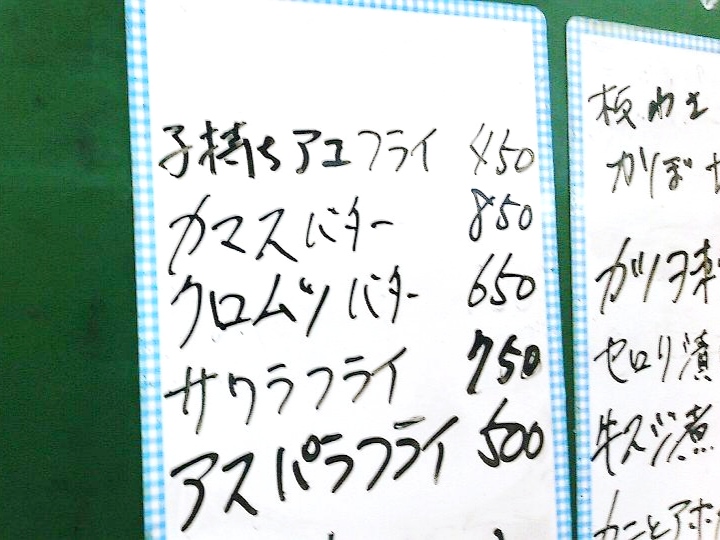 子持ちアユフライ 450
カマスバター 850
クロムツバター 650
サワラフライ 750
アスパラフライ 500
板わさ
ガツ
セロリ漬
牛スジ煮
カニとアボ